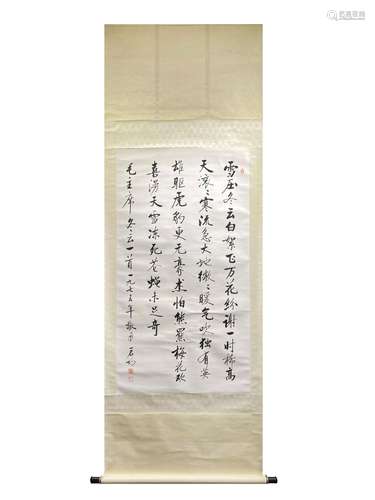 雪压冬云白絮飞万花纷谢一时稀高
天寒寒流急大地微微暖气吹独有英
雄驱虎豹更无豪杰怕熊罴梅花欢
喜漫天雪冻死苍蝇未足奇
毛主席冬云一首一九七五年敬书